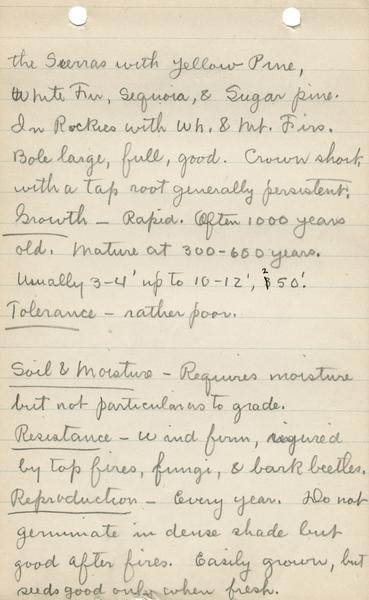 the Sierras with Yellow Pine,
White Fir, Sequoia, & Sugar pine.
In Rockies with Wh. & Mt. Firs.
Bole large, full, good. Crown short
with a tap root generally persistent.
Growth – Rapid. Often 1000 years
old. Mature at 300-600 years.
Usually 3-4' up to 10-12', 250'.
Tolerance – rather poor.
Soil & Moisture – Requires moisture
but not particular as to grade.
Resistance – Wind firm, injured
by top fires, fungi, & bark beetles.
Reproduction – Every year. Do not
germinate in dense shade but
good after fires. Easily grown, but
seeds good only when fresh.